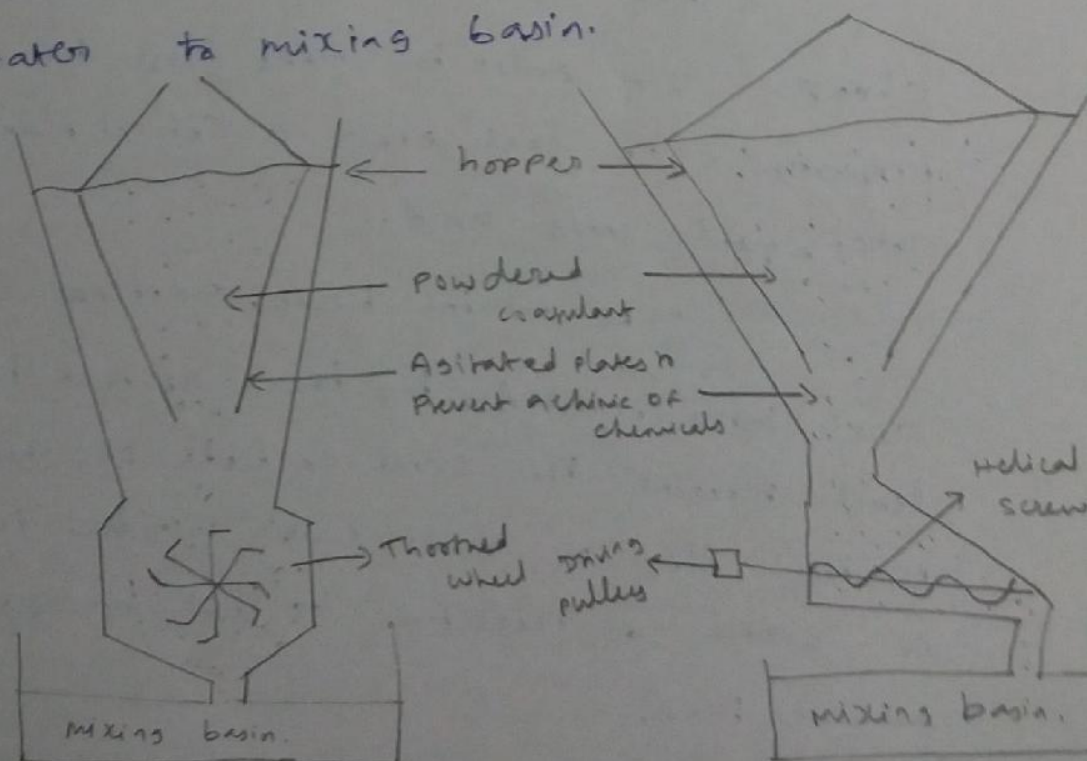 to mixing basin.
hopper
Powdered
coagulant
Agitated plates n
Prevent of
chemicals
Helical
screw
Thoothed
wheel
Driving
pulley
mixing basin.
mixing basin.